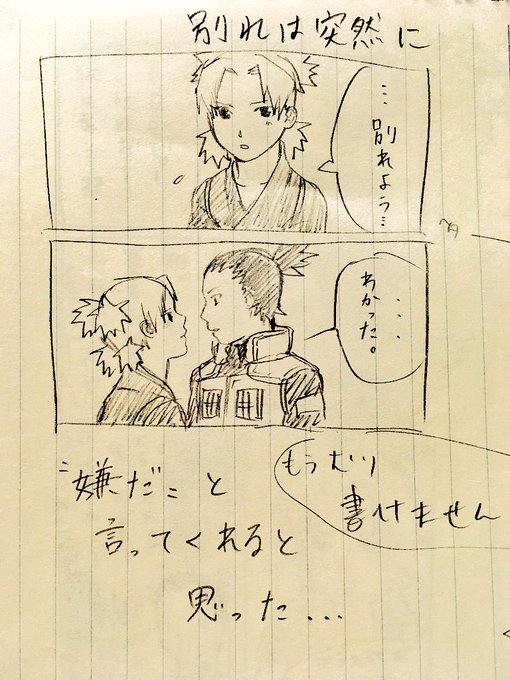 別れは突然に
…別れよう…
…わかった。
"嫌だ"と
言ってくれると
思った...
もうむり
書けません